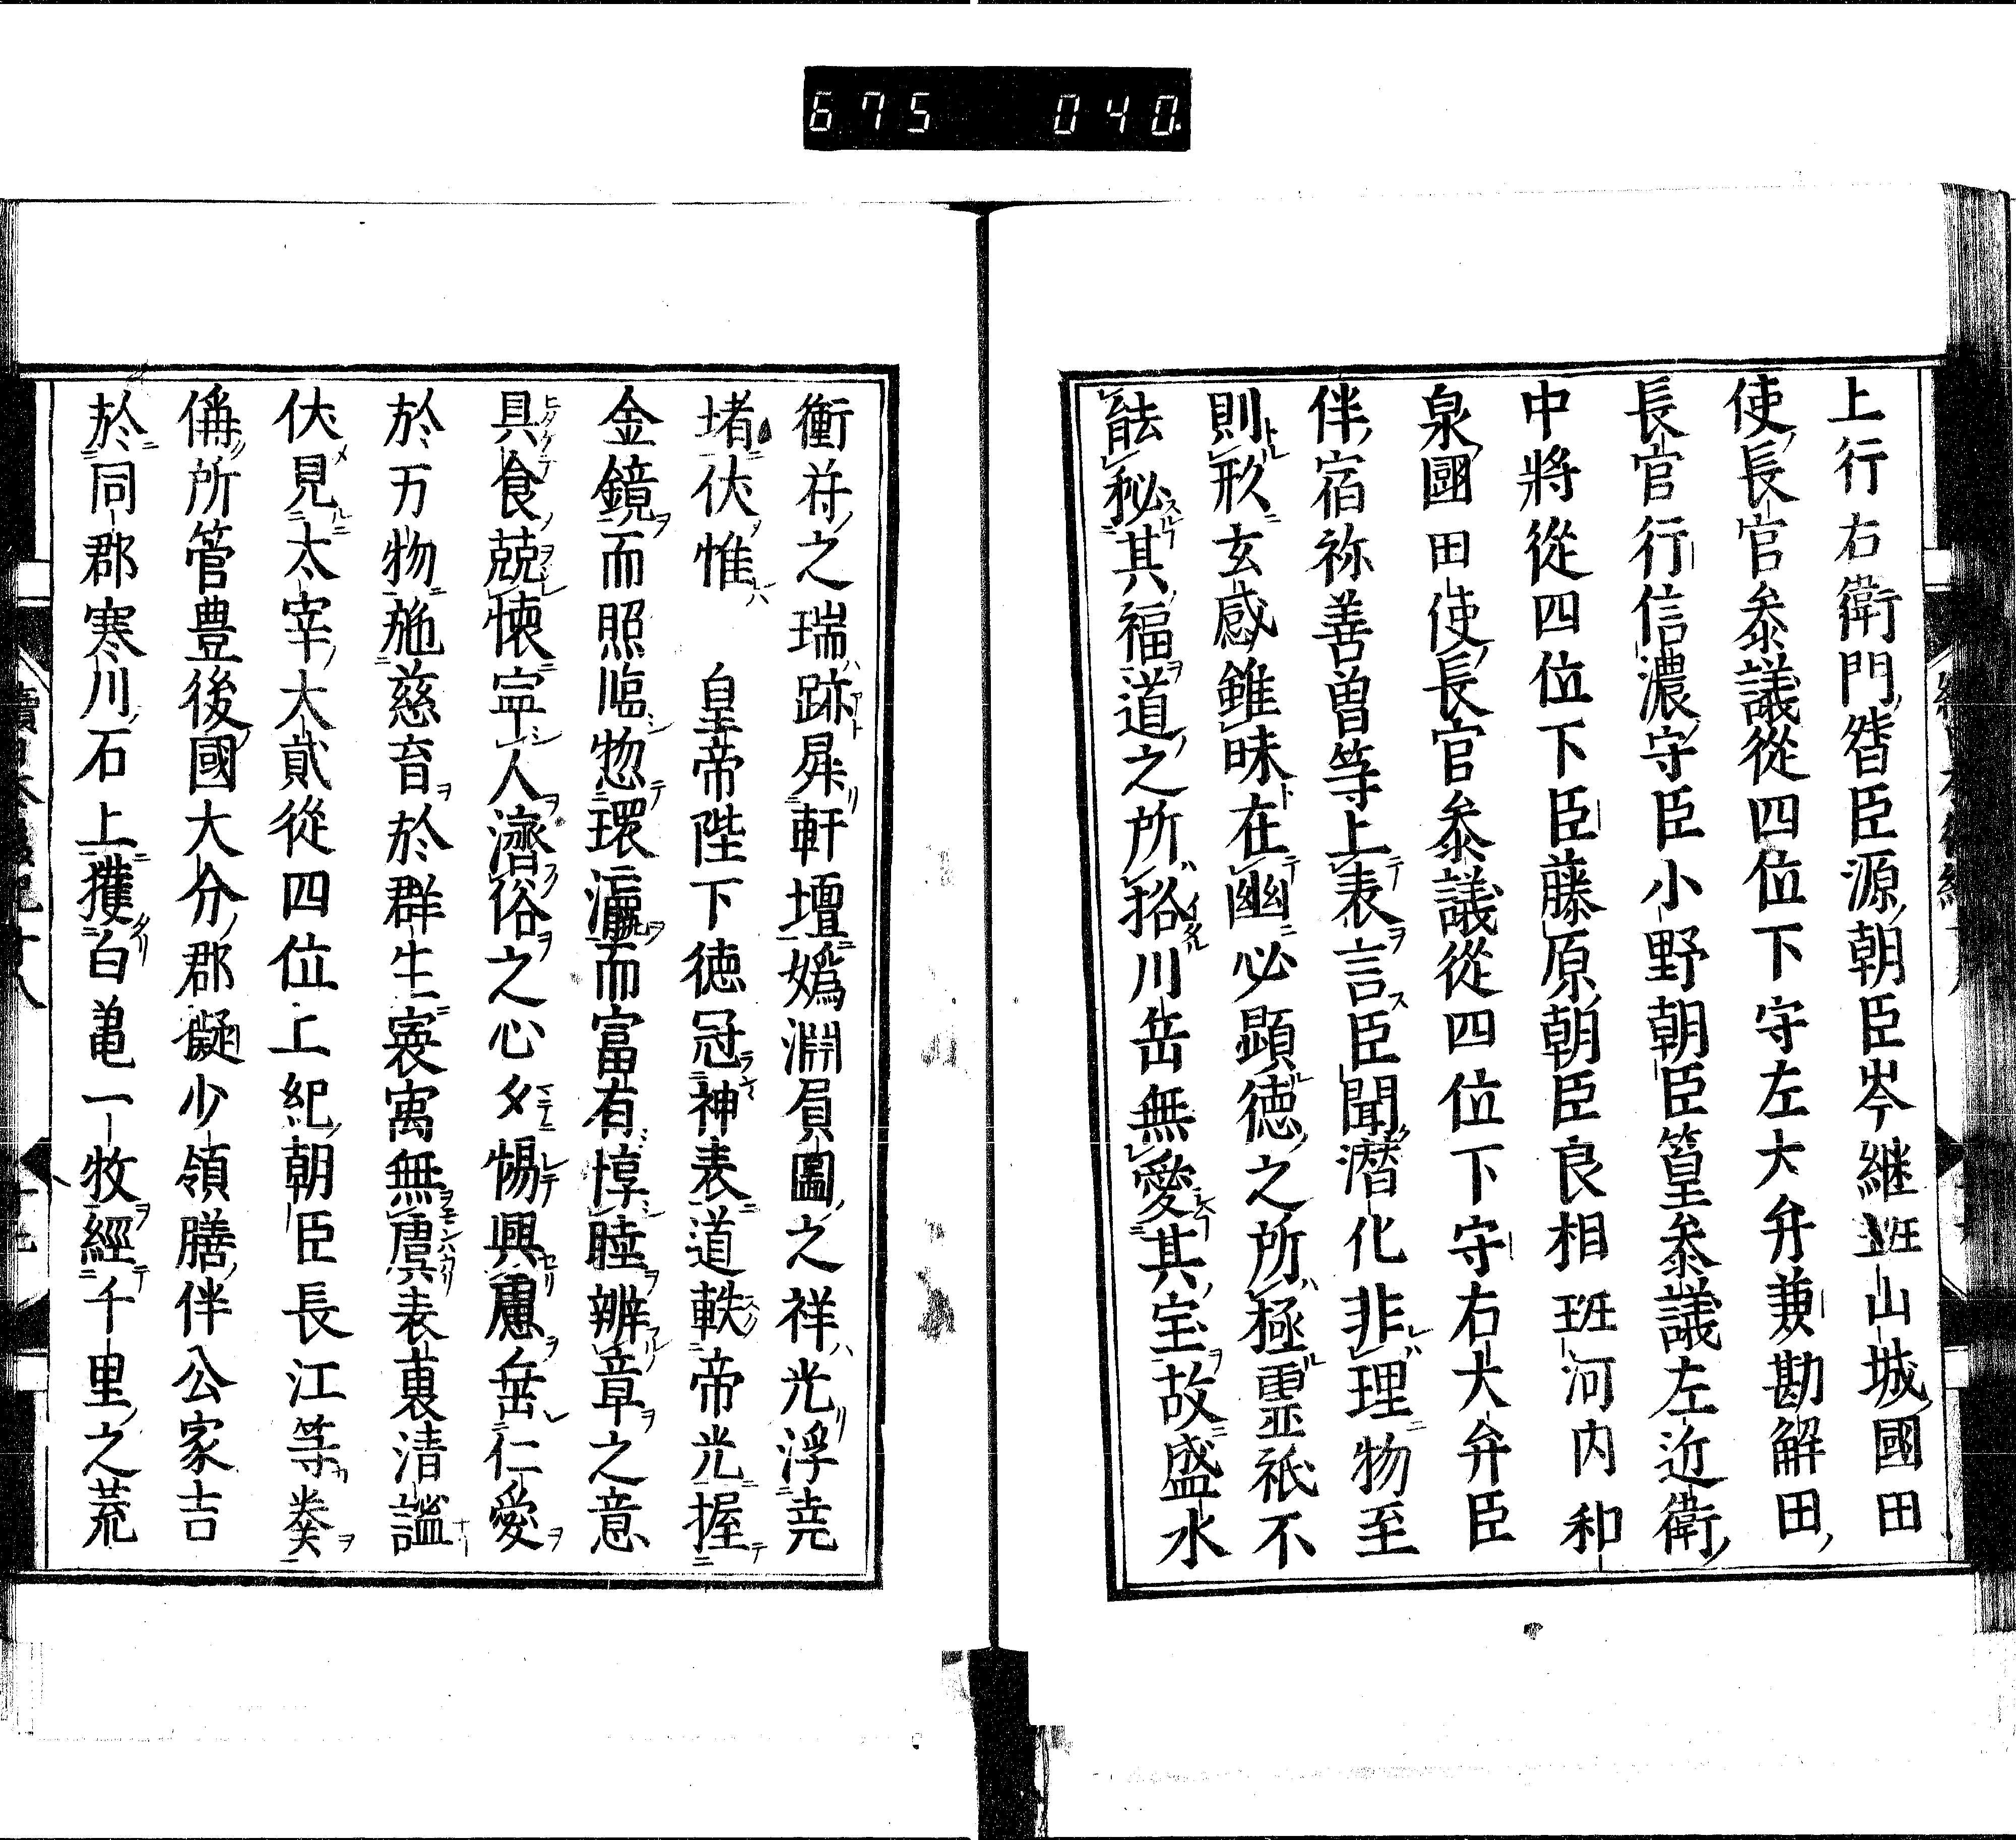 675 040.
上行右衛門督臣源朝臣岑継班山城國田
使長官叅議從四位下守左大弁兼勘解田
長官行信濃守臣小野朝臣篁叅議左近衛
中將從四位下臣藤原朝臣良相班河内和
泉國田使長官叅議從四位下守右大弁臣
伴宿祢善曽等上表言臣聞潜化非理物至
則形玄感雖昧在幽必顕徳之所極霊祇不
能秘其福道之所挌川岳無愛其宝故盛水
衝苻之瑞跡曻軒壇嬀淵負圖之祥光浮尭
堵伏惟　皇帝陛下徳冠神表道軼帝光握
金鏡而照臨惣環瀛而富有惇睦辨章之意
具食兢懐寧人濟俗之心夕惕興慮岳仁愛
於万物施慈育於群生寰㝢無虞表裏清謐
伏見太宰大貳從四位上紀朝臣長江等奏
偁所管豊後國大分郡擬少領膳伴公家吉
於同郡寒川石上獲白亀一牧經千里之荒